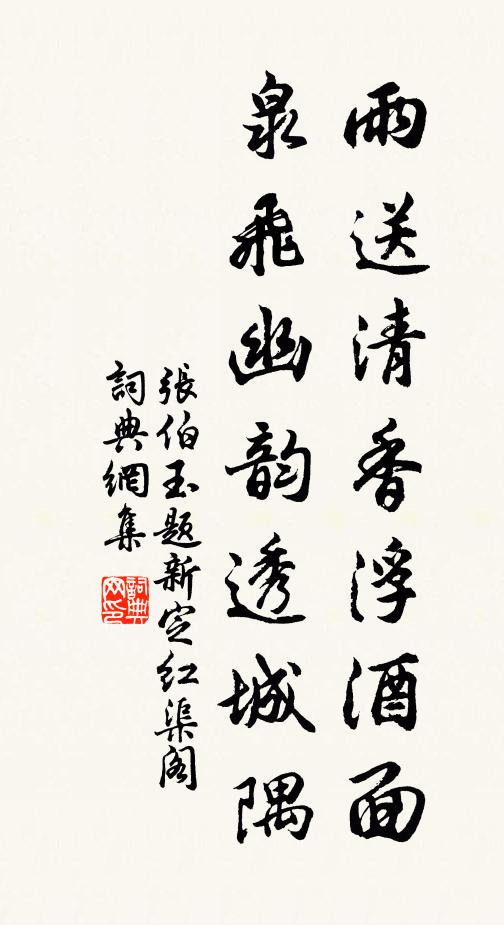 雨送清香浮酒面
泉飛幽韵透城隅
張伯玉題新定紅渠阁
詞典網集
詞典
网印